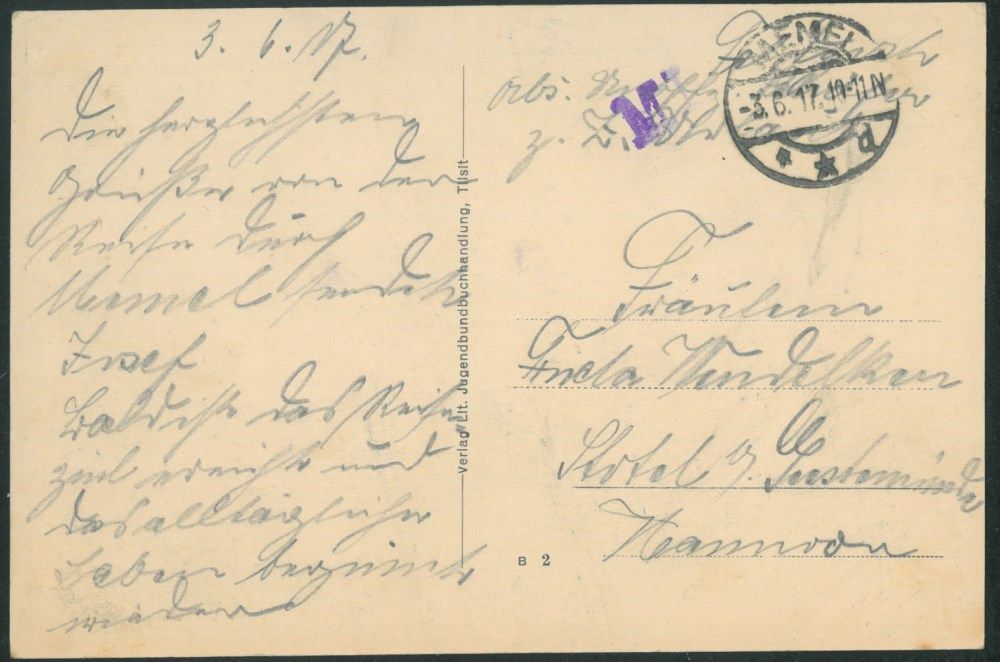 3. 6. 17.
Die herzlichsten
Grüße von der
Reise durch
Memel sendet
Josef
Bald ist das Reise
ziel erreicht und
das alltägliche
Leben beginnt
wieder
Verlag Lit. Jugendbundbuchhandlung, Tilsit
Abs.
z. Z.
M
MEMEL
-3.6.17.10-11N
* * d
Fräulein
Stotel b/ Geestemünde
Hannover
B 2